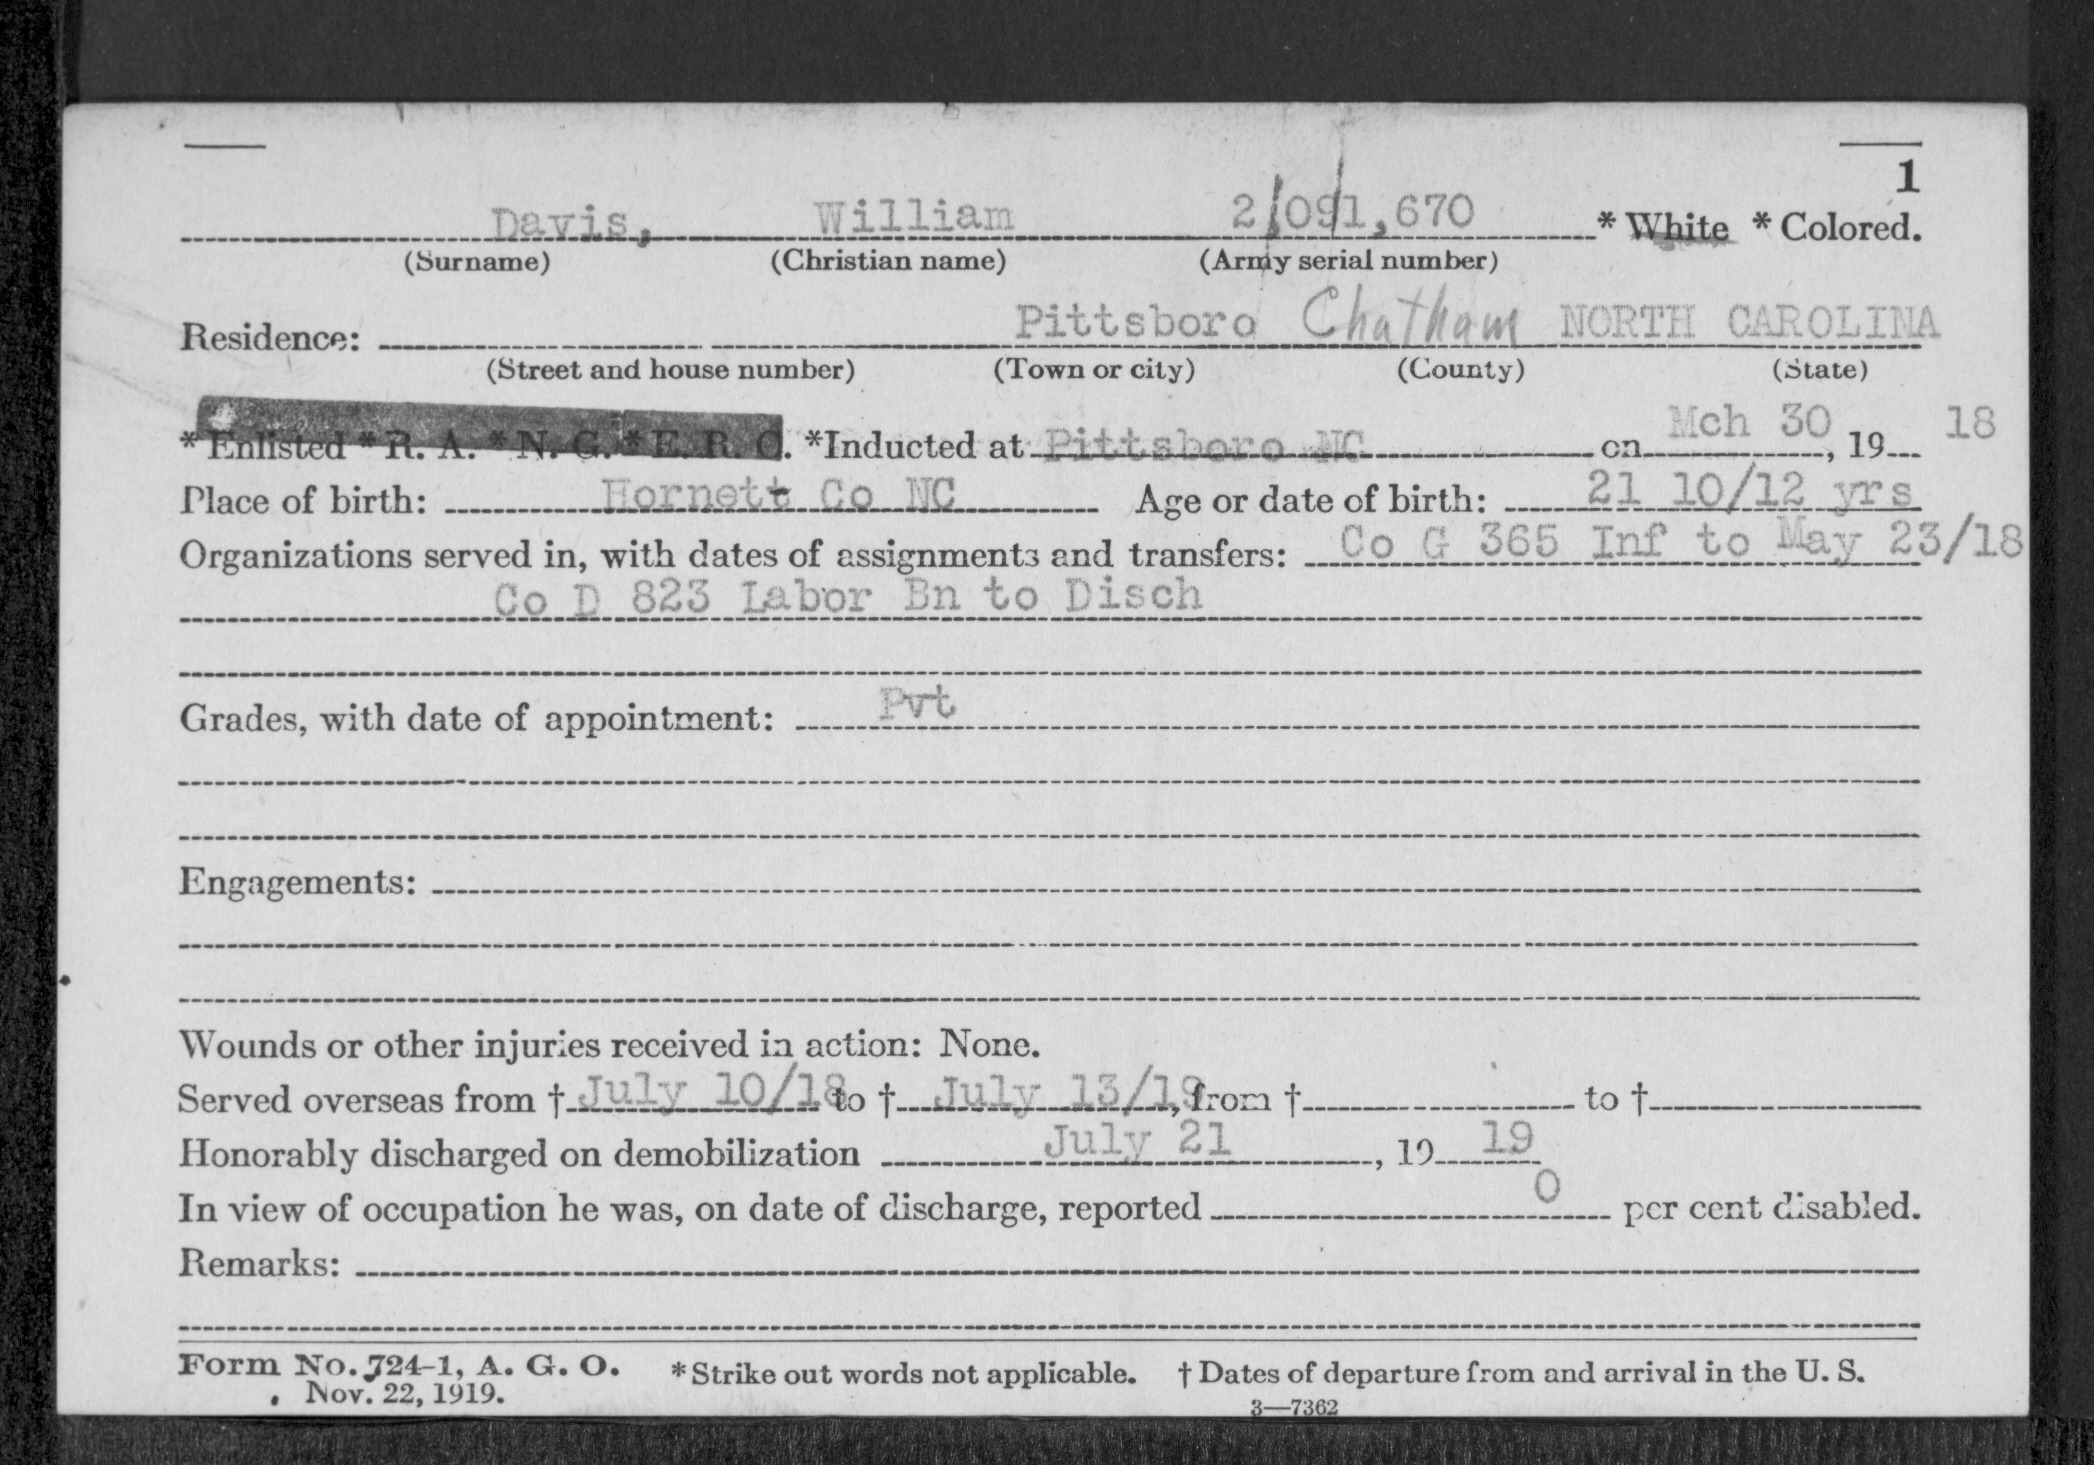 1
Davis, William 2,091,670 * White * Colored.
(Surname) (Christian name) (Army serial number)
Residence: Pittsboro Chatham NORTH CAROLINA
(Street and house number) (Town or city) (County) (State)
* Enlisted * R. A. * N. G. * E. R. C. *Inducted at Pittsboro NC on Mch 30, 19 18
Place of birth: Hornett Co NC Age or date of birth: 21 10/12 yrs
Organizations served in, with dates of assignments and transfers: Co G 365 Inf to May 23/18
Co D 823 Labor Bn to Disch
Grades, with date of appointment: Pvt
Engagements:
Wounds or other injuries received in action: None.
Served overseas from † July 10/18 to † July 13/19, from † to †
Honorably discharged on demobilization July 21, 19 19
In view of occupation he was, on date of discharge, reported 0 per cent disabled.
Remarks:
Form No. 724-1, A. G. O. * Strike out words not applicable. † Dates of departure from and arrival in the U. S.
Nov. 22, 1919.
3—7362